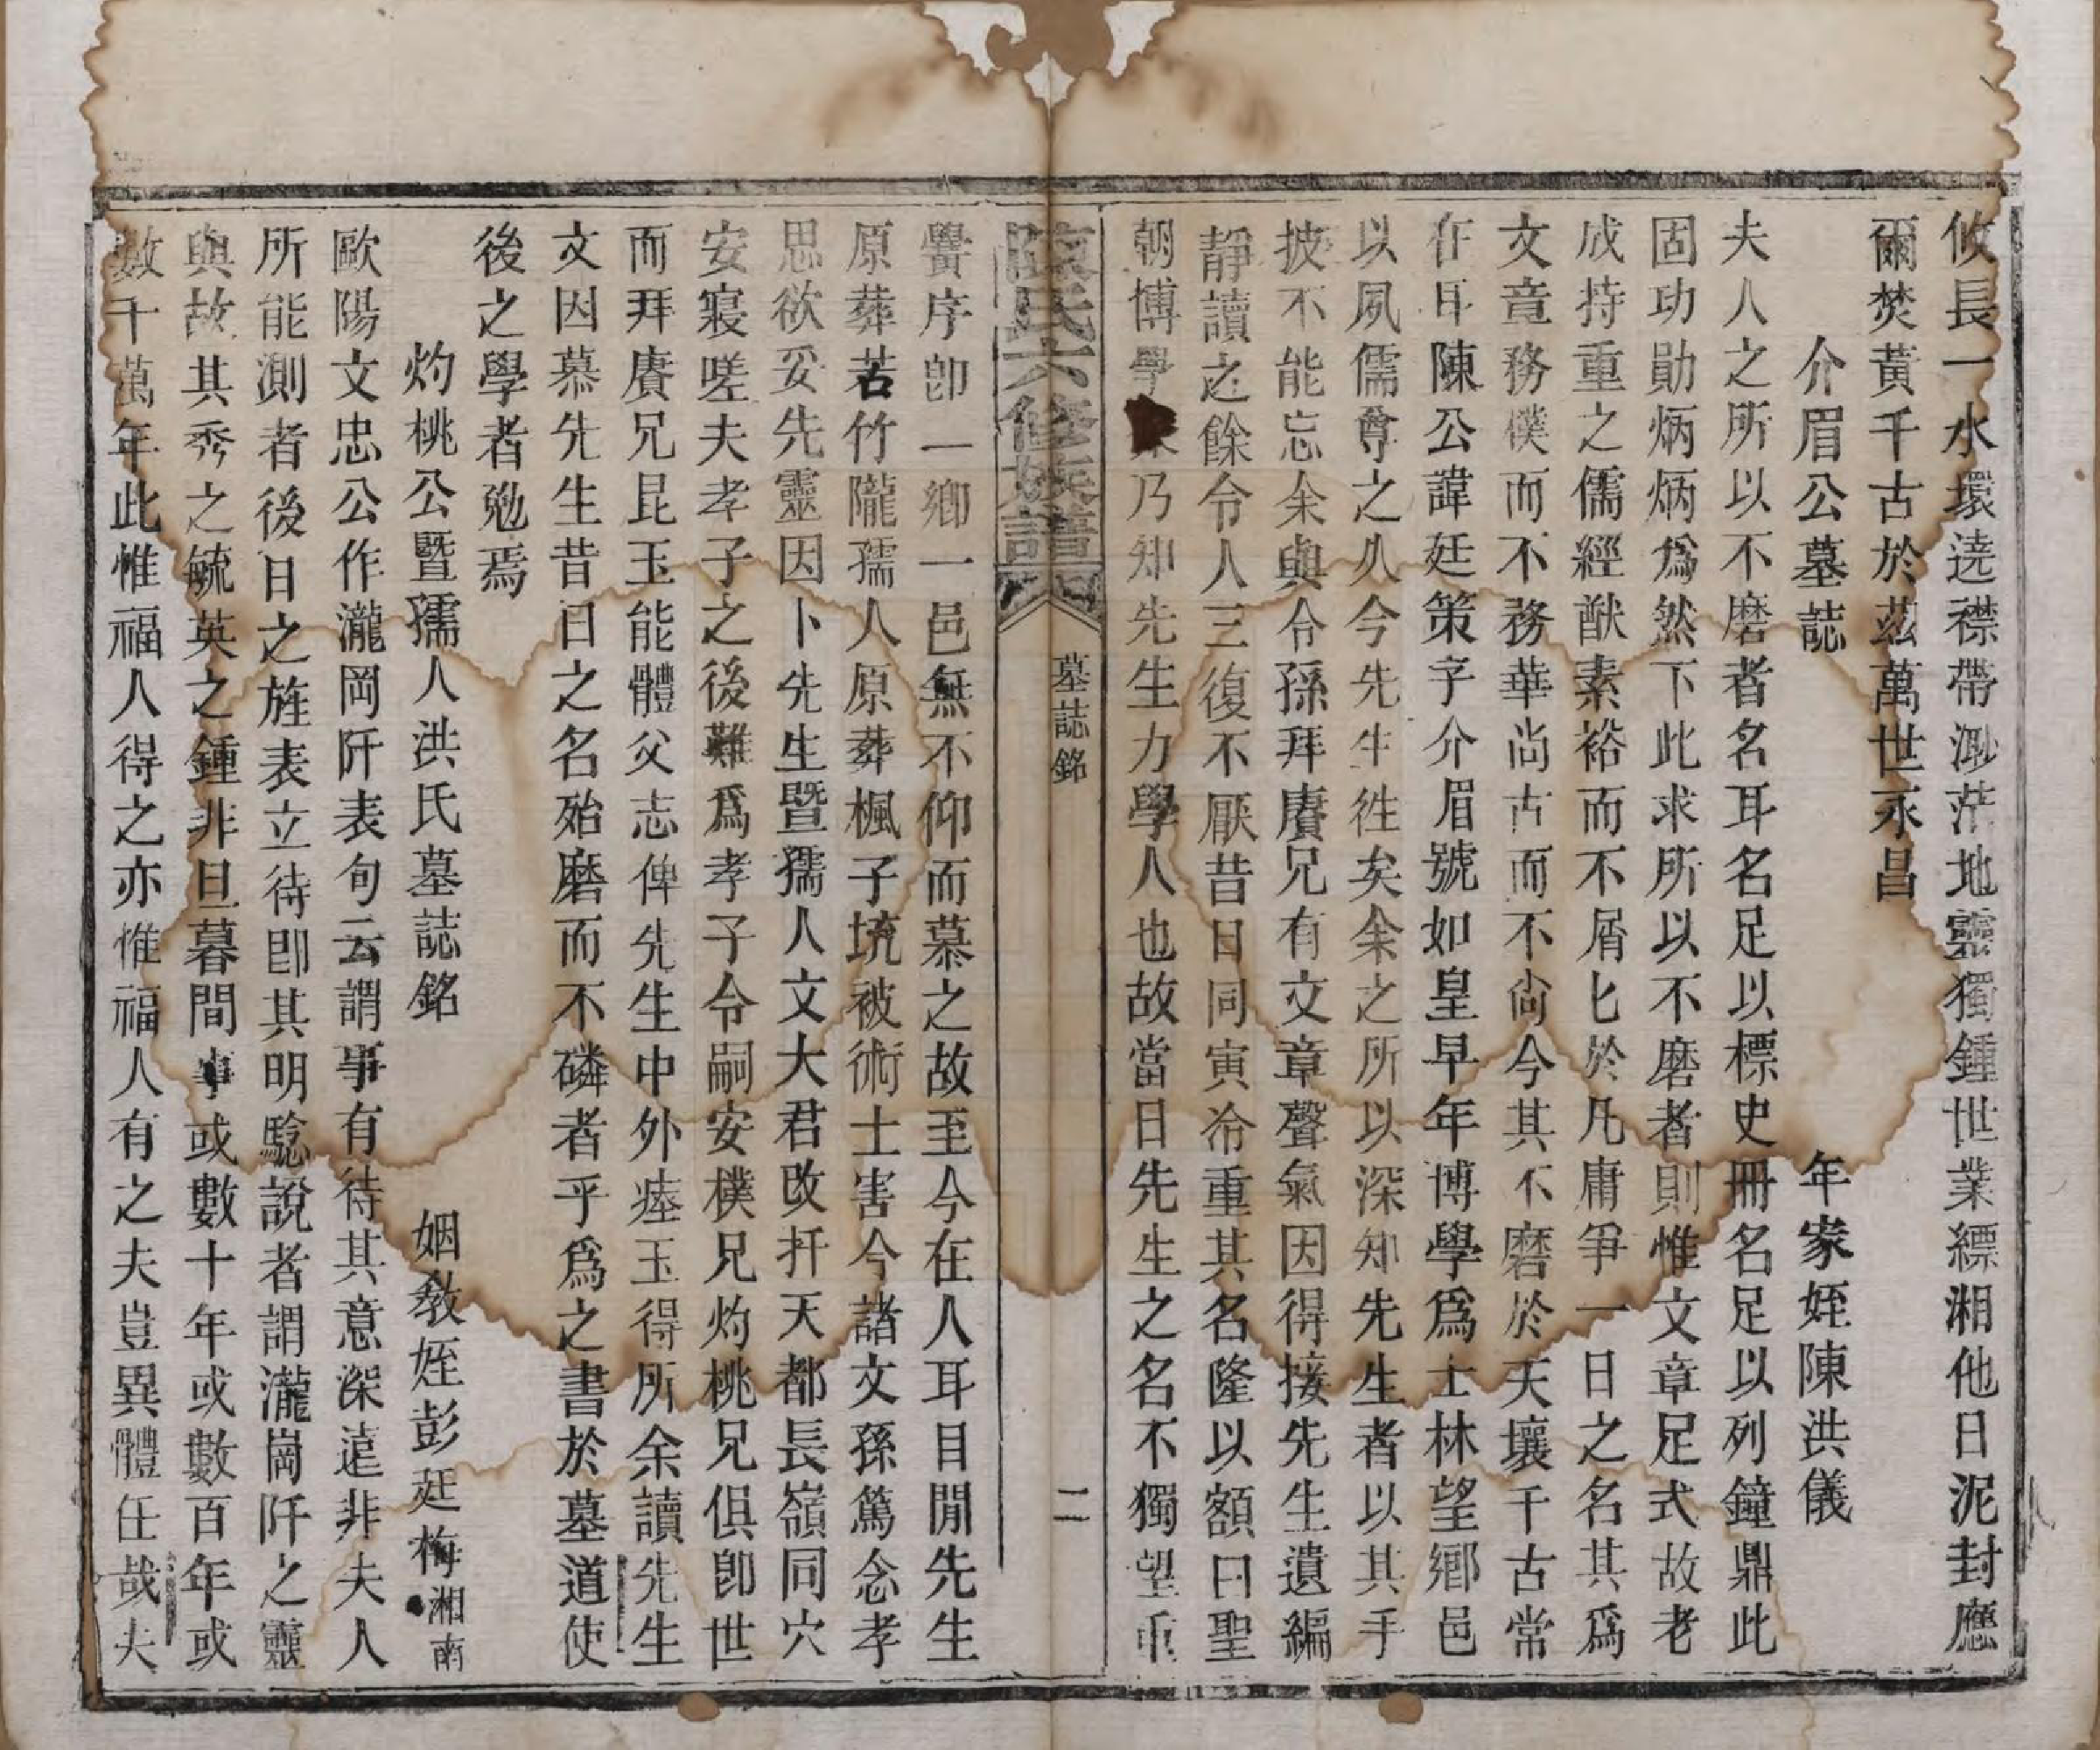 攸長一水環遶襟帶渺茫地靈獨鍾世業縹湘他日泥封應
爾焚黃千古於茲萬世永昌
介眉公墓誌 年家姪陳洪儀
夫人之所以不磨者名耳名足以標史冊名足以列鐘鼎此
固功勛炳炳爲然下此求所以不磨者則惟文章足式故老
成持重之儒經猷素裕而不屑匕於凡庸爭一日之名其爲
文章務樸而不務華尚古而不尙今其不磨於天壤千古常
在耳陳公諱廷策字介眉號如皇早年博學爲士林望鄉邑
以夙儒尊之久今先生徃矣余之所以深知先生者以其手
披不能忘余與令孫拜賡兄有文章聲氣因得接先生遺編
靜讀之餘令人三復不厭昔日同寅冷重其名隆以額曰聖
朝博學乃知先生力學人也故當日先生之名不獨望重
陳氏六修族譜 墓誌銘 二
黌序卽一鄉一邑無不仰而慕之故至今在人耳目閒先生
原葬苦竹隴孺人原葬楓子塆被術士害今諸文孫篤念孝
思欲妥先靈因卜先生暨孺人文大君改扦天都長嶺同穴
安寢嗟夫孝子之後難爲孝子令嗣安樸兄灼桃兄俱卽世
而拜賡兄昆玉能體父志俾先生中外瘞玉得所余讀先生
文因慕先生昔日之名殆磨而不磷者乎爲之書於墓道使
後之學者勉焉
灼桃公暨孺人洪氏墓誌銘 姻教姪彭廷梅湘南
歐陽文忠公作瀧岡阡表句云謂事有待其意深遠非夫人
所能測者後日之旌表立待卽其明騐說者謂瀧崗阡之靈
與故其秀之毓英之鍾非旦暮間事或數十年或數百年或
數千萬年此惟福人得之亦惟福人有之夫豈異體任哉夫